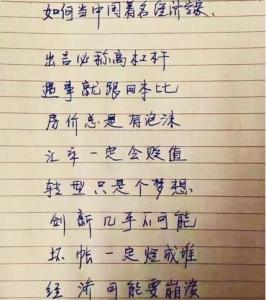 如何当中国著名经济学家、
出言必称高杠杆
遇事就跟日本比
房价总是有泡沫
汇率一定会贬值
转型只是个梦想
创新几乎不可能
坏帐一定烂成堆
经济可能要崩溃